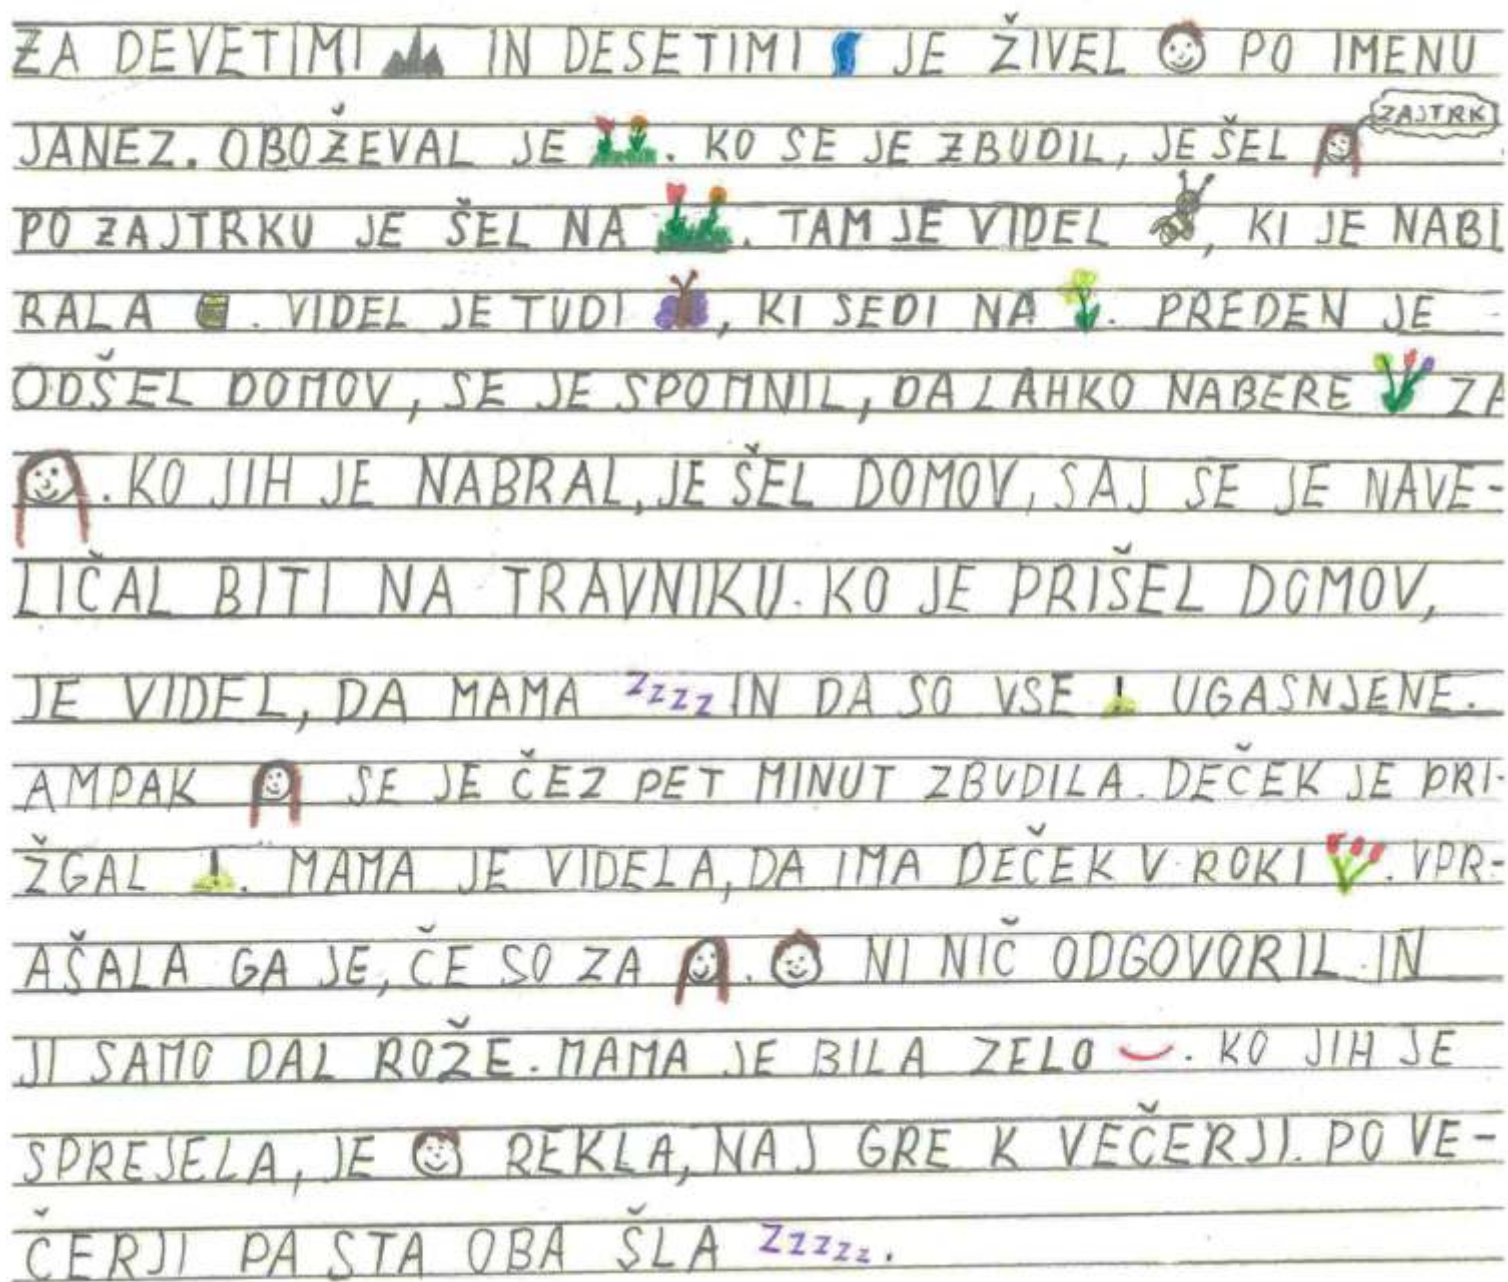 ZA DEVETIMI IN DESETIMI JE ŽIVEL PO IMENU
ZAJTRK
JANEZ. OBOŽEVAL JE . KO SE JE ZBUDIL, JE ŠEL
PO ZAJTRKU JE ŠEL NA . TAM JE VIDEL , KI JE NABI
RALA . VIDEL JE TUDI , KI SEDI NA . PREDEN JE
ODŠEL DOMOV, SE JE SPOMNIL, DA LAHKO NABERE ZA
. KO JIH JE NABRAL, JE ŠEL DOMOV, SAJ SE JE NAVE-
LIČAL BITI NA TRAVNIKU. KO JE PRIŠEL DOMOV,
JE VIDEL, DA MAMA ZZZZ IN DA SO VSE UGASNJENE.
AMPAK SE JE ČEZ PET MINUT ZBUDILA. DEČEK JE PRI-
ŽGAL . MAMA JE VIDELA, DA IMA DEČEK V ROKI . VPR-
AŠALA GA JE, ČE SO ZA . NI NIČ ODGOVORIL IN
JI SAMO DAL ROŽE. MAMA JE BILA ZELO . KO JIH JE
SPREJELA, JE REKLA, NAJ GRE K VEČERJI. PO VE-
ČERJI PA STA OBA ŠLA ZZZZZ.